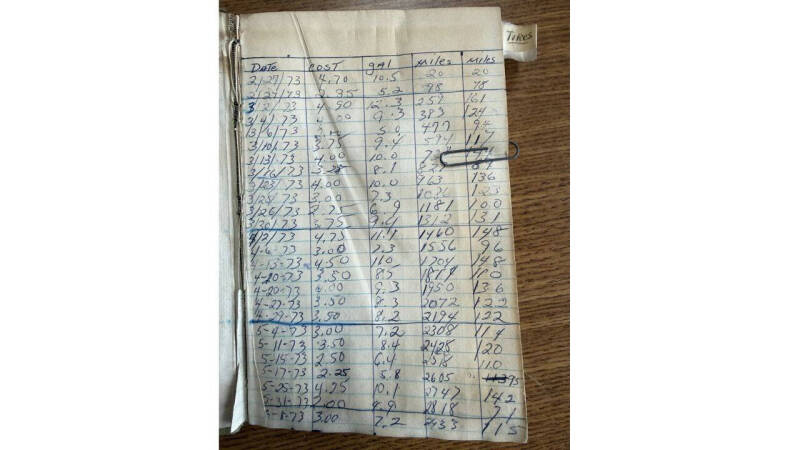 TIRES
DATE COST gal miles miles
2/27/73 4.70 10.5 20 20
2/27/73 2.35 5.2 98 78
3/2/73 4.90 12.3 259 161
3/4/73 9.3 383 124
3/6/73 5.0 477 94
3/10/73 3.75 9.4 594 117
3/13/73 4.00 10.0
3/16/73 3.25 8.1 827
3/23/73 4.00 10.0 963 136
3/25/73 3.00 7.3 123
3/26/73 2.75 6.9 1181 100
3/30/73 3.75 9.4 1312 131
4/2/73 4.75 1460 148
4-6-73 3.00 7.3 1556 96
4-13-73 4.50 11.0 1704 148
4-20-73 3.50 8.5 1814 110
4-20-73 4.00 9.3 1950 136
4-27-73 3.50 8.3 2072 122
4-29-73 3.50 8.2 2194 122
5-4-73 3.00 7.2 2308 114
5-11-73 3.50 8.4 2428 120
5-15-73 2.50 6.4 110
5-17-73 2.25 5.8 2605 95
5-25-73 4.25 10.1 2747 142
5-31-73 2.00 4.9 2818 71
6-8-73 3.00 7.2 2933 115